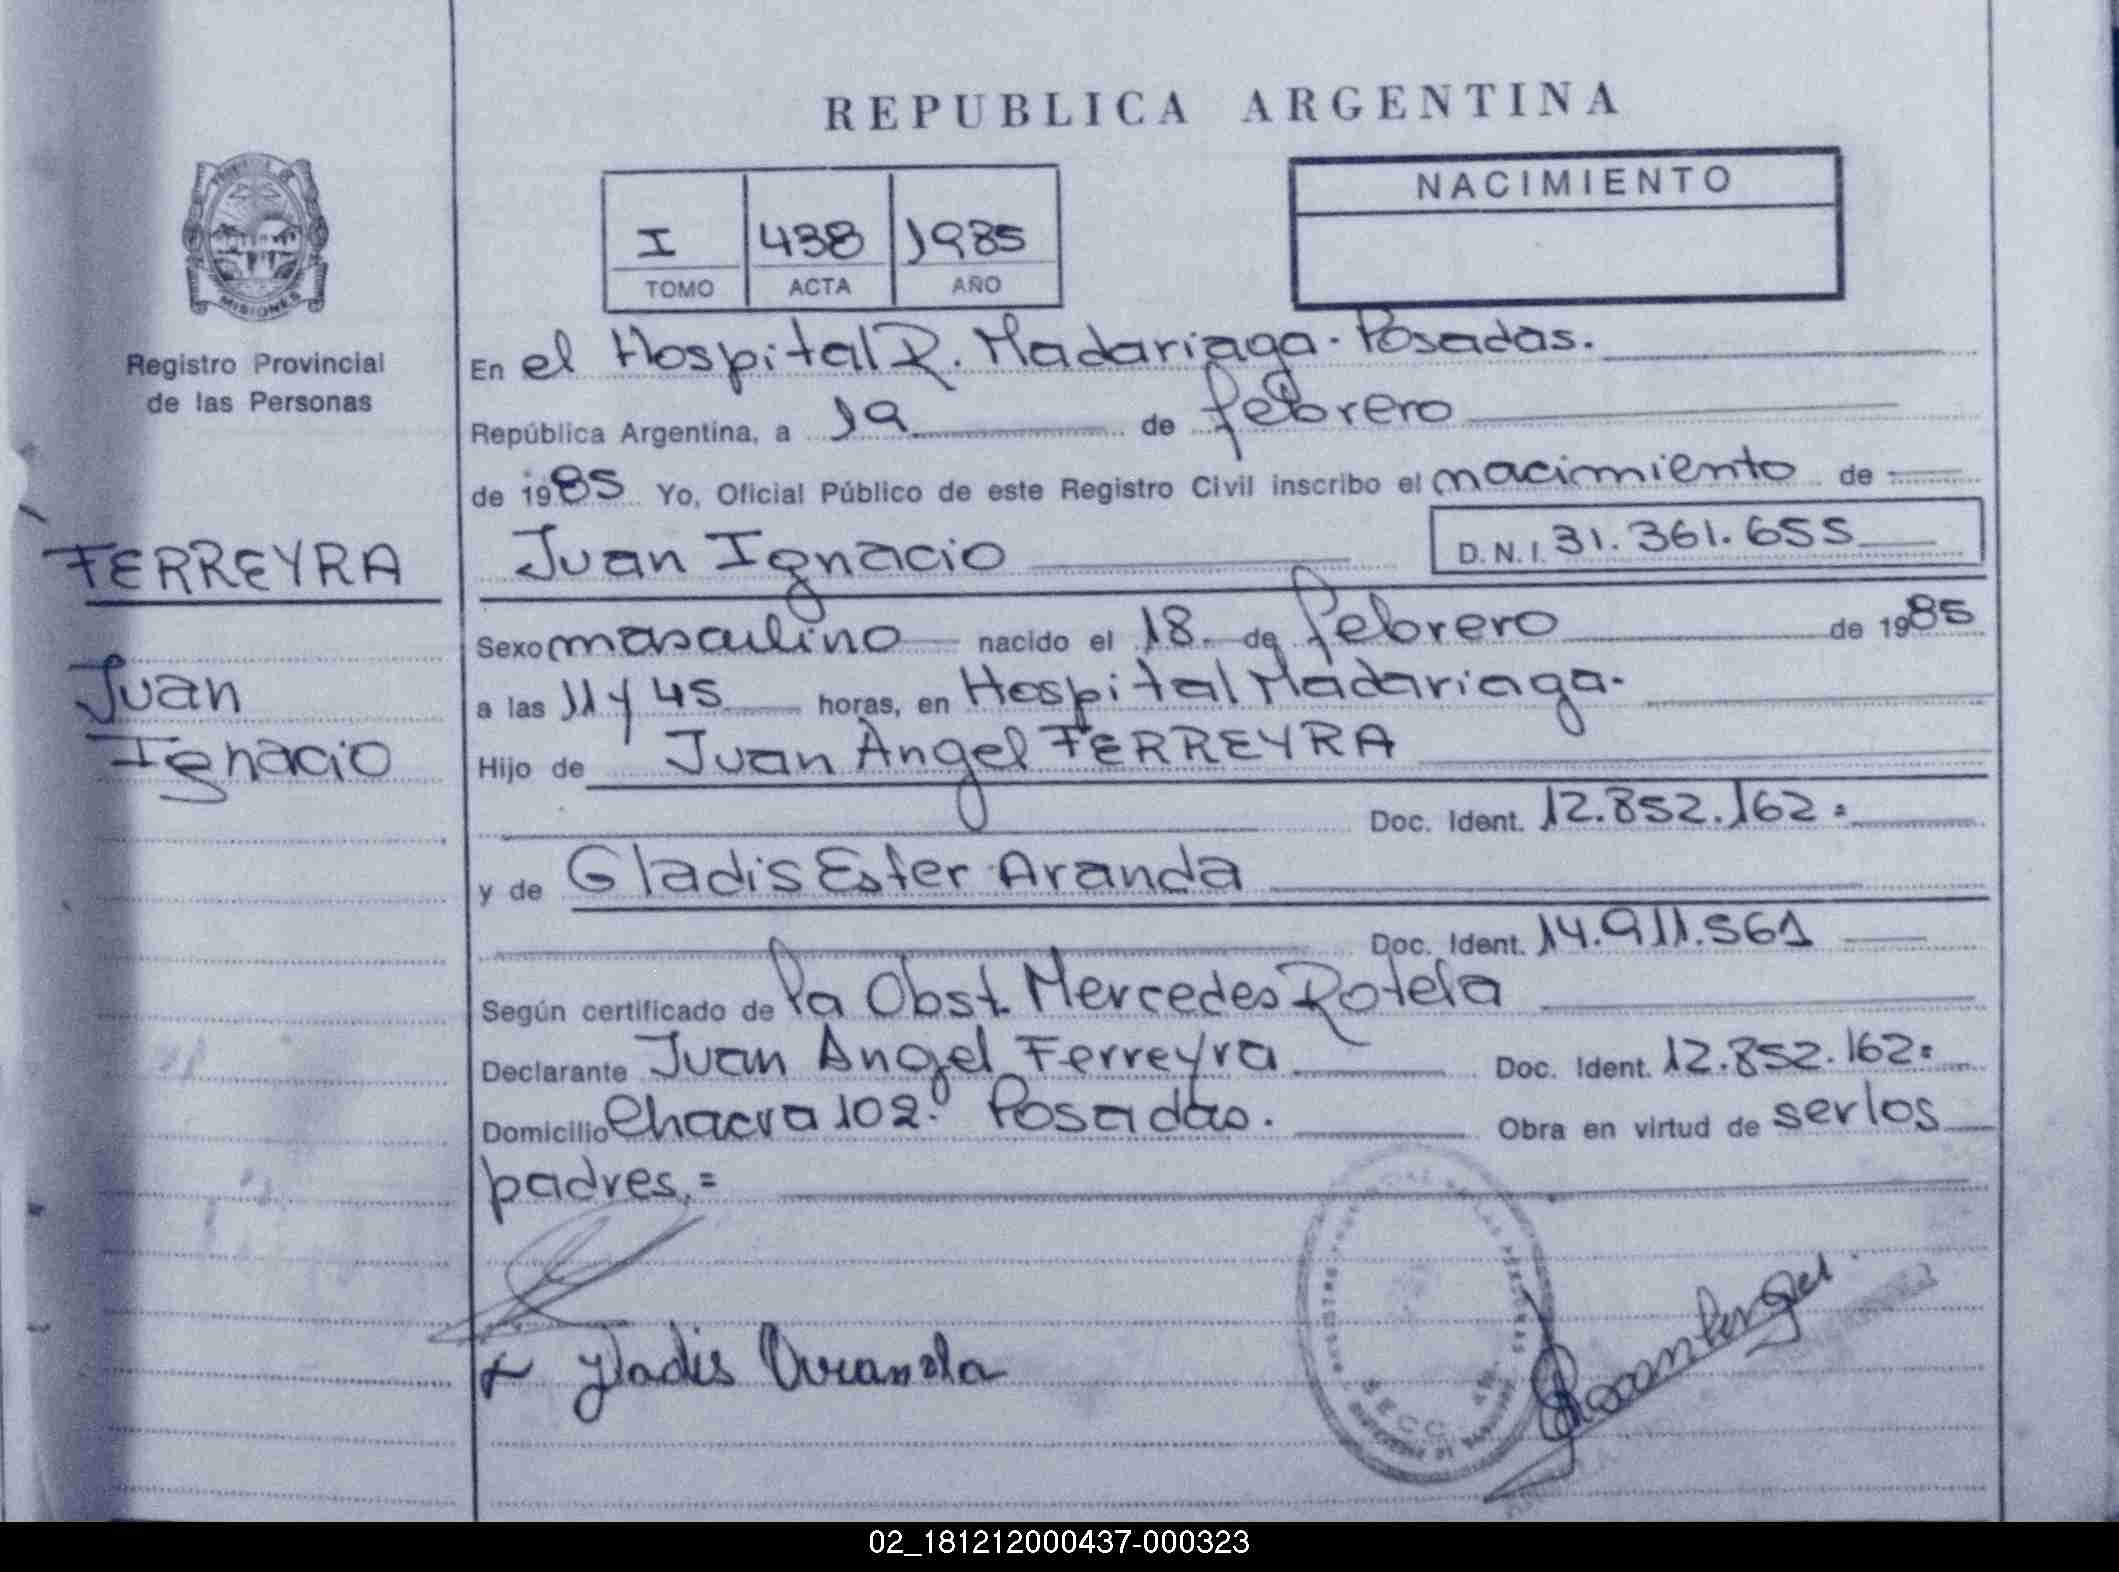 REPUBLICA ARGENTINA
NACIMIENTO
I 438 1985
TOMO ACTA AÑO
MISIONES
Registro Provincial
de las Personas
FERREYRA
Juan
Ignacio
En el Hospital R. Madariaga. Posadas.
República Argentina, a 19 de febrero
de 1985 Yo, Oficial Público de este Registro Civil inscribo el nacimiento de
Juan Ignacio D.N.I. 31.361.655
Sexo masculino nacido el 18 de febrero de 1985
a las 11 y 45 horas, en Hospital Madariaga.
Hijo de Juan Angel FERREYRA
Doc. Ident. 12.852.162=
y de Gladis Ester Aranda
Doc. Ident. 14.911.561
Según certificado de la Obst. Mercedes Rotela
Declarante Juan Angel Ferreyra Doc. Ident. 12.852.162=
Domicilio Chacra 102. Posadas. Obra en virtud de ser los
padres.=
Gladis Aranda
SECC.
02_181212000437-000323